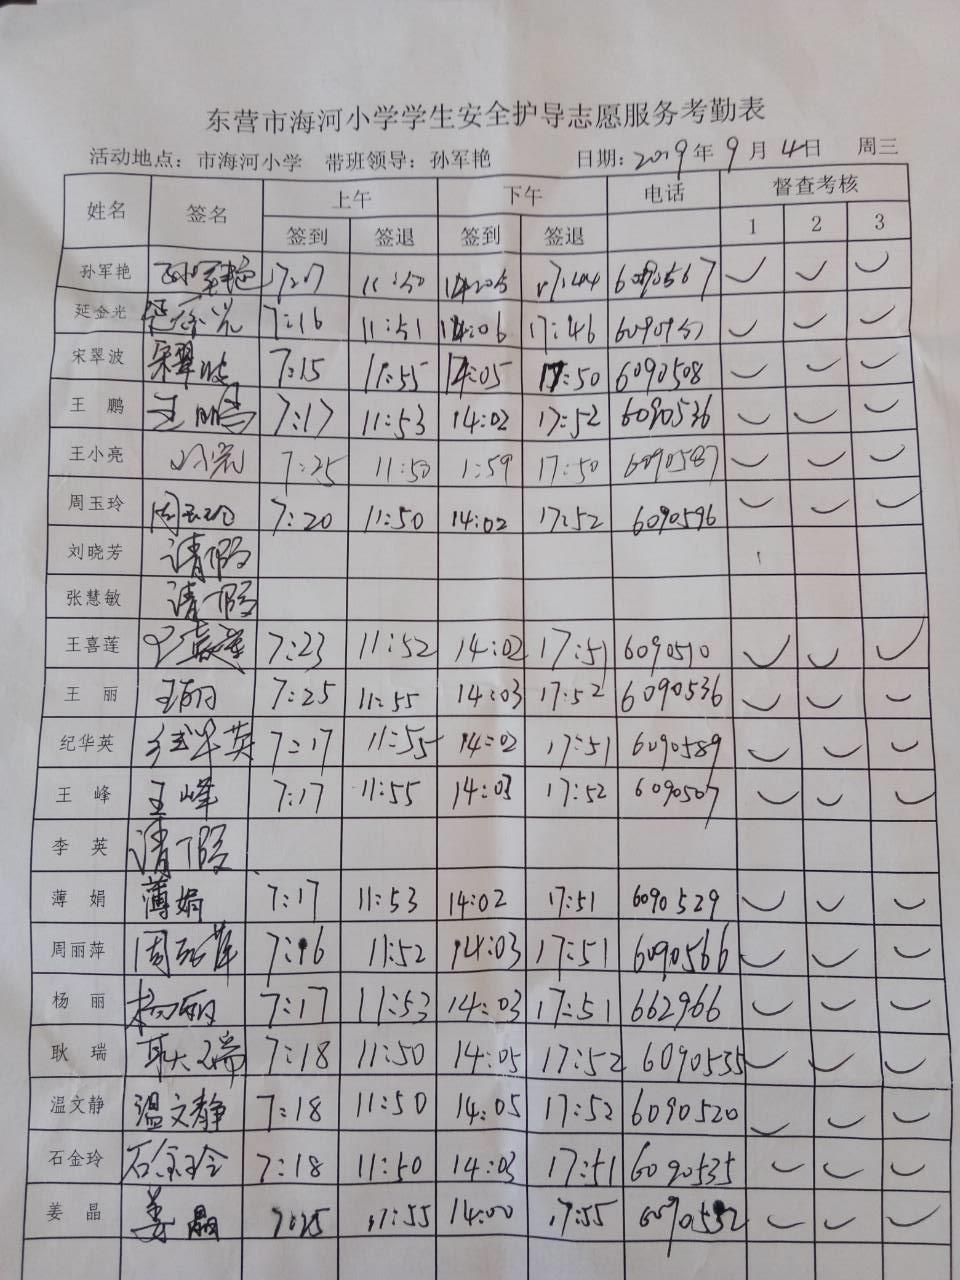 东营市海河小学学生安全护导志愿服务考勤表
活动地点：市海河小学 带班领导：孙军艳 日期：2019年9月4日 周三
姓名 签名 上午 下午 电话 督查考核
签到 签退 签到 签退 1 2 3
孙军艳 孙军艳 17:07 11:50 14:05 17:44 6090567 ✓ ✓ ✓
延金光 延金光 7:16 11:51 14:06 17:46 ✓ ✓ ✓
宋翠波 宋翠波 7:15 11:55 14:05 17:50 6090508 ✓ ✓ ✓
王 鹏 王鹏 7:17 11:53 14:02 17:52 6090536 ✓ ✓ ✓
王小亮 7:25 11:50 1:59 17:50 6090587 ✓ ✓ ✓
周玉玲 周玉玲 7:20 11:50 14:02 17:52 6090596 ✓ ✓ ✓
刘晓芳 请假
张慧敏 请假
王喜莲 王喜莲 7:23 11:52 14:02 17:51 6090510 ✓ ✓ ✓
王 丽 王丽 7:25 11:55 14:03 17:52 6090536 ✓ ✓ ✓
纪华英 纪华英 7:17 11:55 14:02 17:51 6090589 ✓ ✓ ✓
王 峰 王峰 7:17 11:55 14:03 17:52 6090507 ✓ ✓ ✓
李 英 请假
薄 娟 薄娟 7:17 11:53 14:02 17:51 6090529 ✓ ✓ ✓
周丽萍 周丽萍 7:16 11:52 14:03 17:51 6090566 ✓ ✓ ✓
杨 丽 杨丽 7:17 11:53 14:03 17:51 662966 ✓ ✓ ✓
耿 瑞 耿瑞 7:18 11:50 14:05 17:52 6090535 ✓ ✓ ✓
温文静 温文静 7:18 11:50 14:05 17:52 6090520 ✓ ✓ ✓
石金玲 石金玲 7:18 11:50 14:03 17:51 6090535 ✓ ✓ ✓
姜 晶 姜晶 7:25 11:55 14:00 17:55 6090532 ✓ ✓ ✓